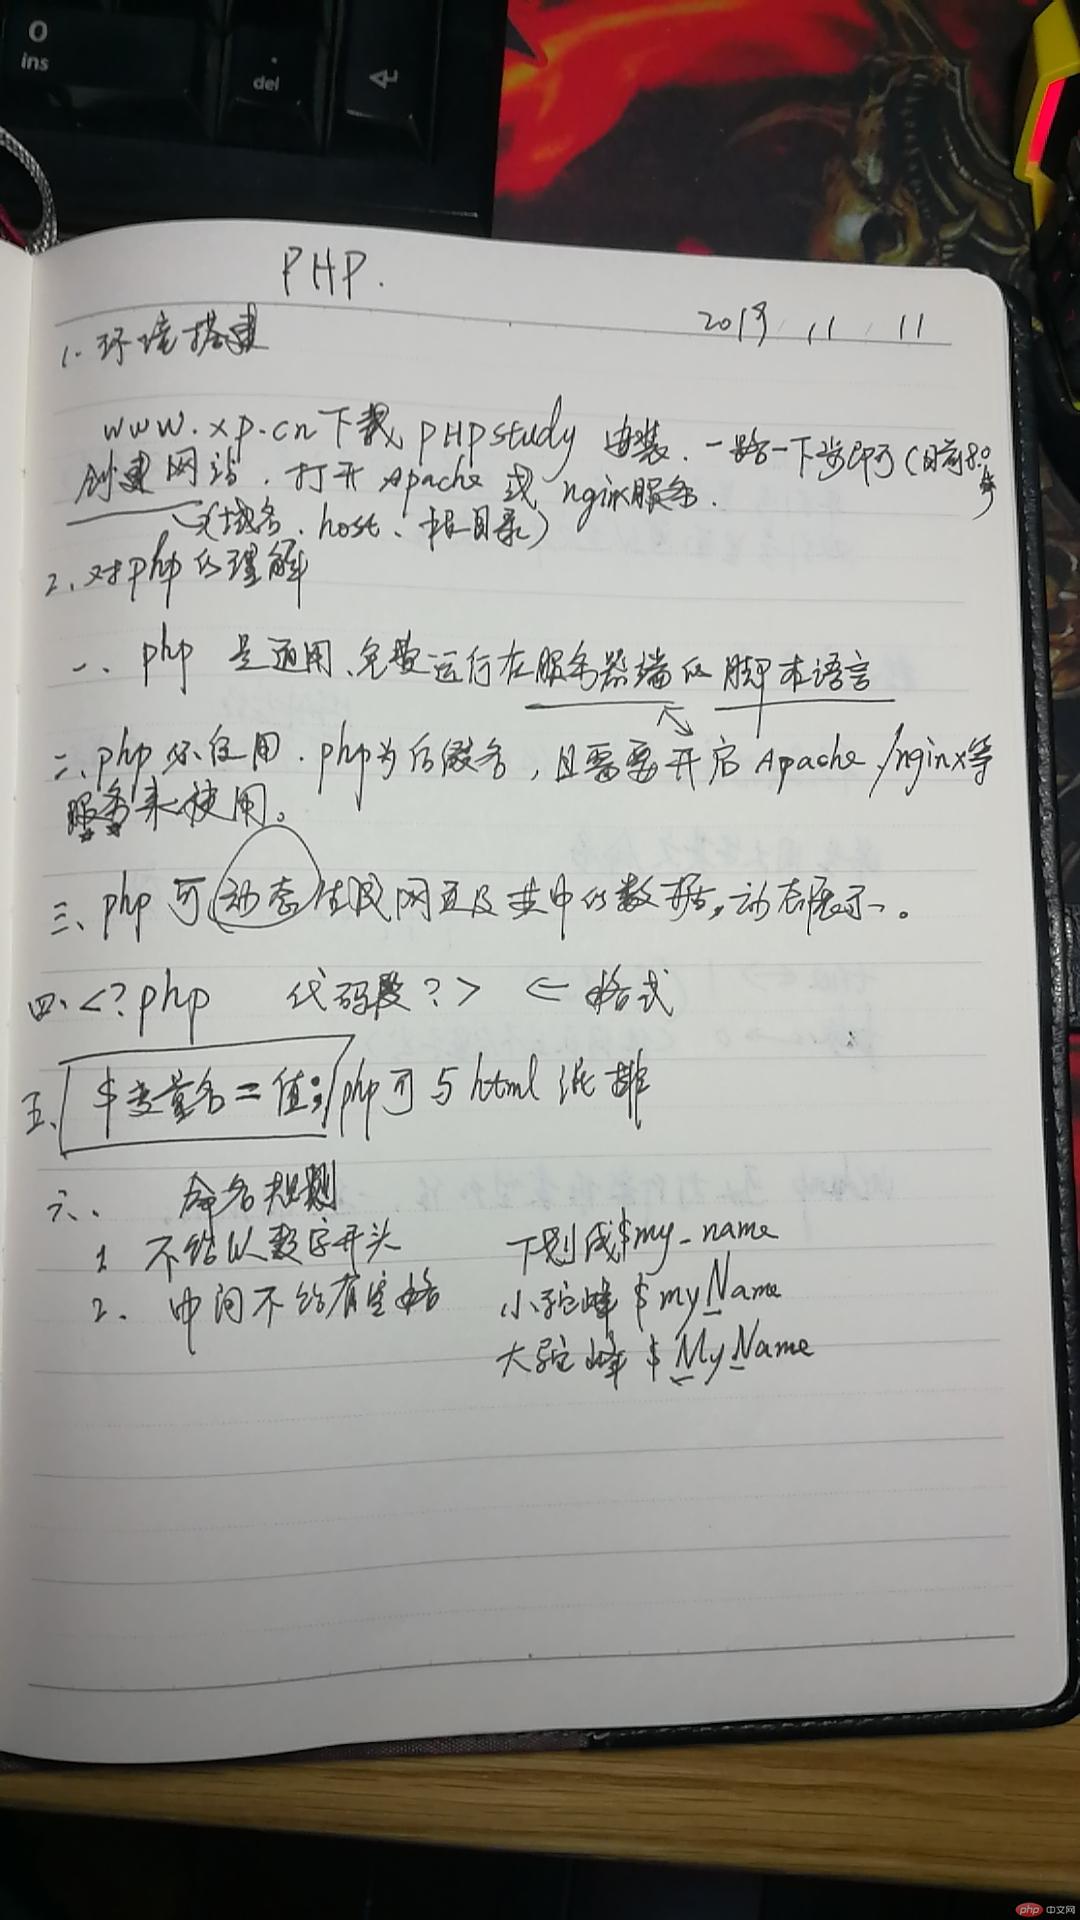 0
ins
.
del
PHP.
2019 11 11
1. 环境搭建
www.xp.cn下载 PHPstudy 安装.一路一下步即可(目前8.0
创建网站.打开Apache 或 nginx服务.
(域名、host、根目录)
2、对php的理解
一、php 是通用、免费运行在服务器端的脚本语言
二、php 使用.php为后缀名,且需要开启 Apache/nginx等
服务来使用。
三、php可动态生成网页及其中的数据,动态展示。
四、<?php 代码段?> ← 格式
五、$变量名=值; php可与html混排
六、 命名规则
1 不能以数字开头 下划线$my_name
2. 中间不能有空格 小驼峰 $myName
大驼峰 $MyName
php 中文网